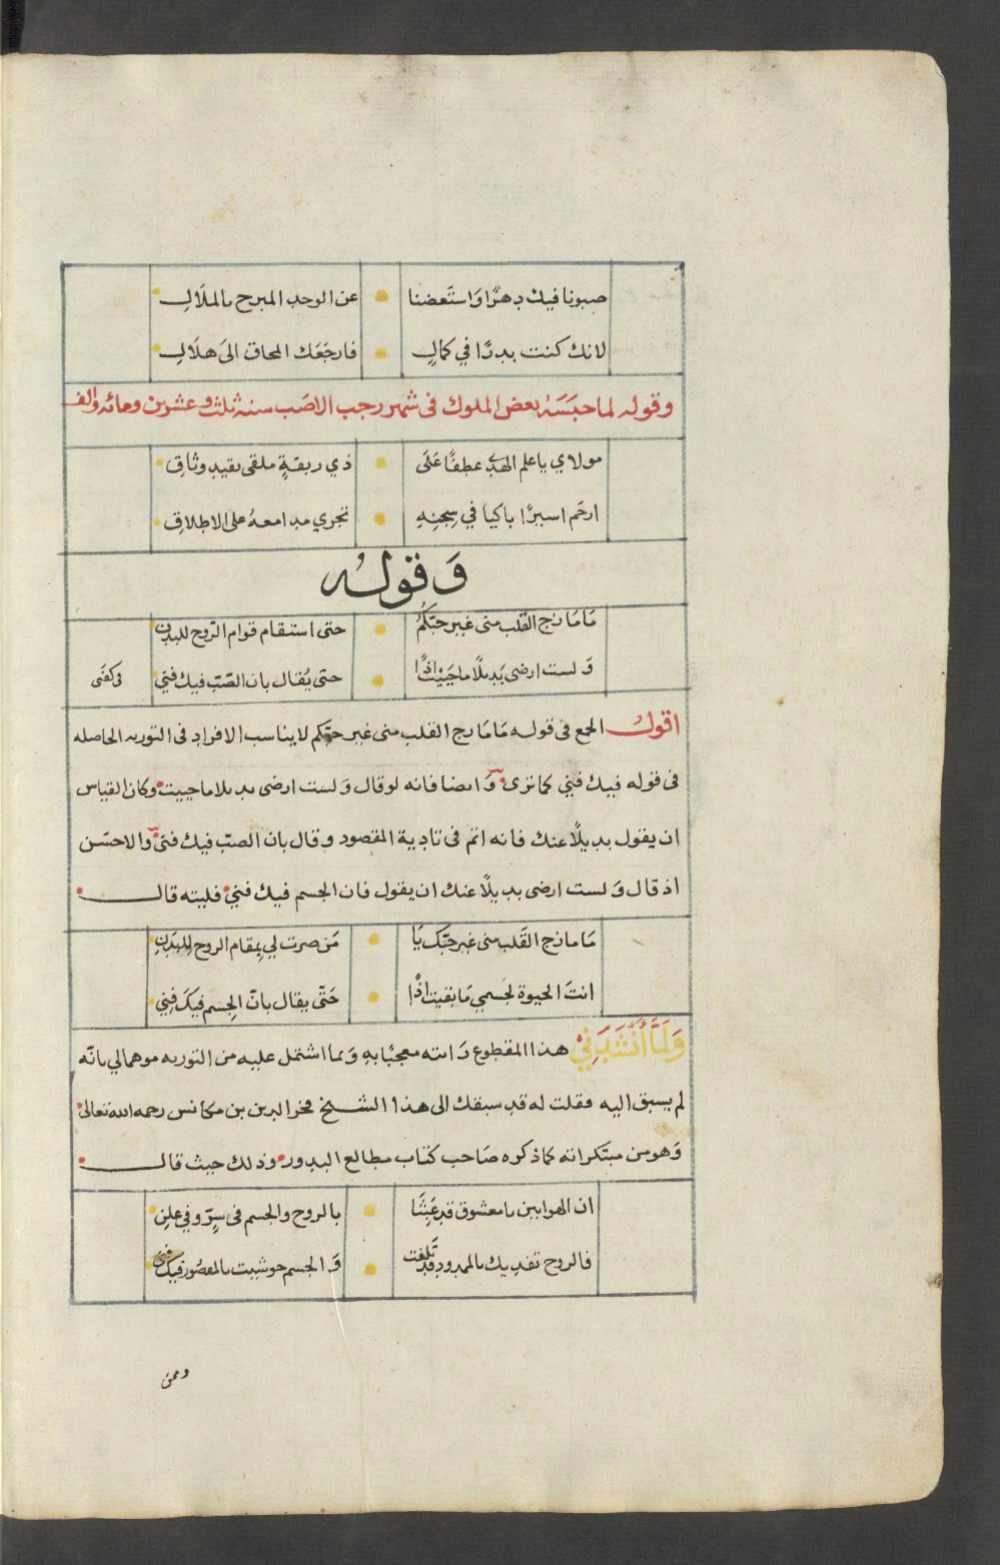 صبونا فيك دهرًا واستَعضنا • عن الوجد المبرح بالملَالِ
لانك كنت بدرًا في كمالٍ • فارجَعَك المحاق الىَ هلَالِ
وقوله لما حبَسَهُ بعض الملوك فى شهر رجب الاصَب سنة ثلث وعشرين ومائه والف
مولاي يا علم الهدى عطفًا عَلَى • ذي ربقةٍ ملقى بقيد وثاقِ
ارحَم اسيرًا باكيا في سِجنِهِ • تجري مدامعهُ على الاطلاقِ
وَقولُه
مَا مَازج القَلب منى غير حبّكُمُ • حتى استقام قوام الرّوح للبدن
وَلست ارضى بَديلًا ما حَيَيْتُ اذًا • حتى يُقال بان الصّب فيك فنِي
وكفَى
اقولُ الجمع فى قوله مَا مَازج القلب منى غير حبّكم لا يناسب الافراد فى التوريه الحاصله
فى قوله فيك فنِي كما ترى • وَايضا فانه لو قال وَلست ارضى بديلا ما حييت • وكان القياس
ان يقول بديلًا عنك فانه اتم فى تادية المقصود وقال بان الصبّ فيك فنى • والاحسَن
اذ قال وَلست ارضى بديلًا عنك ان يقول فان الجسم فيك فنِي • فليته قال •
مَا مازج القَلب منى غير حبّك يَا • مَن صرت لي بمقام الروح للبَدنِ
انتَ الحيوة لجسمي مَا بقيت اذًا • حَتّى يقال بانّ الجِسم فيكَ فِني
وَلَمَّا أَنْشَدَنِي هذا المقطوع رَايته معجبًا بهِ وَبما اشتمل عليه من التوريه موهما لي بانّه
لم يسبق اليه فقلت له قد سبقك الى هذا الشيخ فخر الدين بن مكانس رحمه الله تعالى •
وَهو من مبتكراته كما ذكره صَاحب كتاب مطالع البدور • وذلك حيث قال •
ان الهوا بين يا معشوق قد عَبِثَا • بالروح والجسم فى سِرّ وفي علنِ
فالروح تفديك بالممدود قد تَلِفت • وَالجسم حوشيت بالمقصُور فيك فنِي
وممن